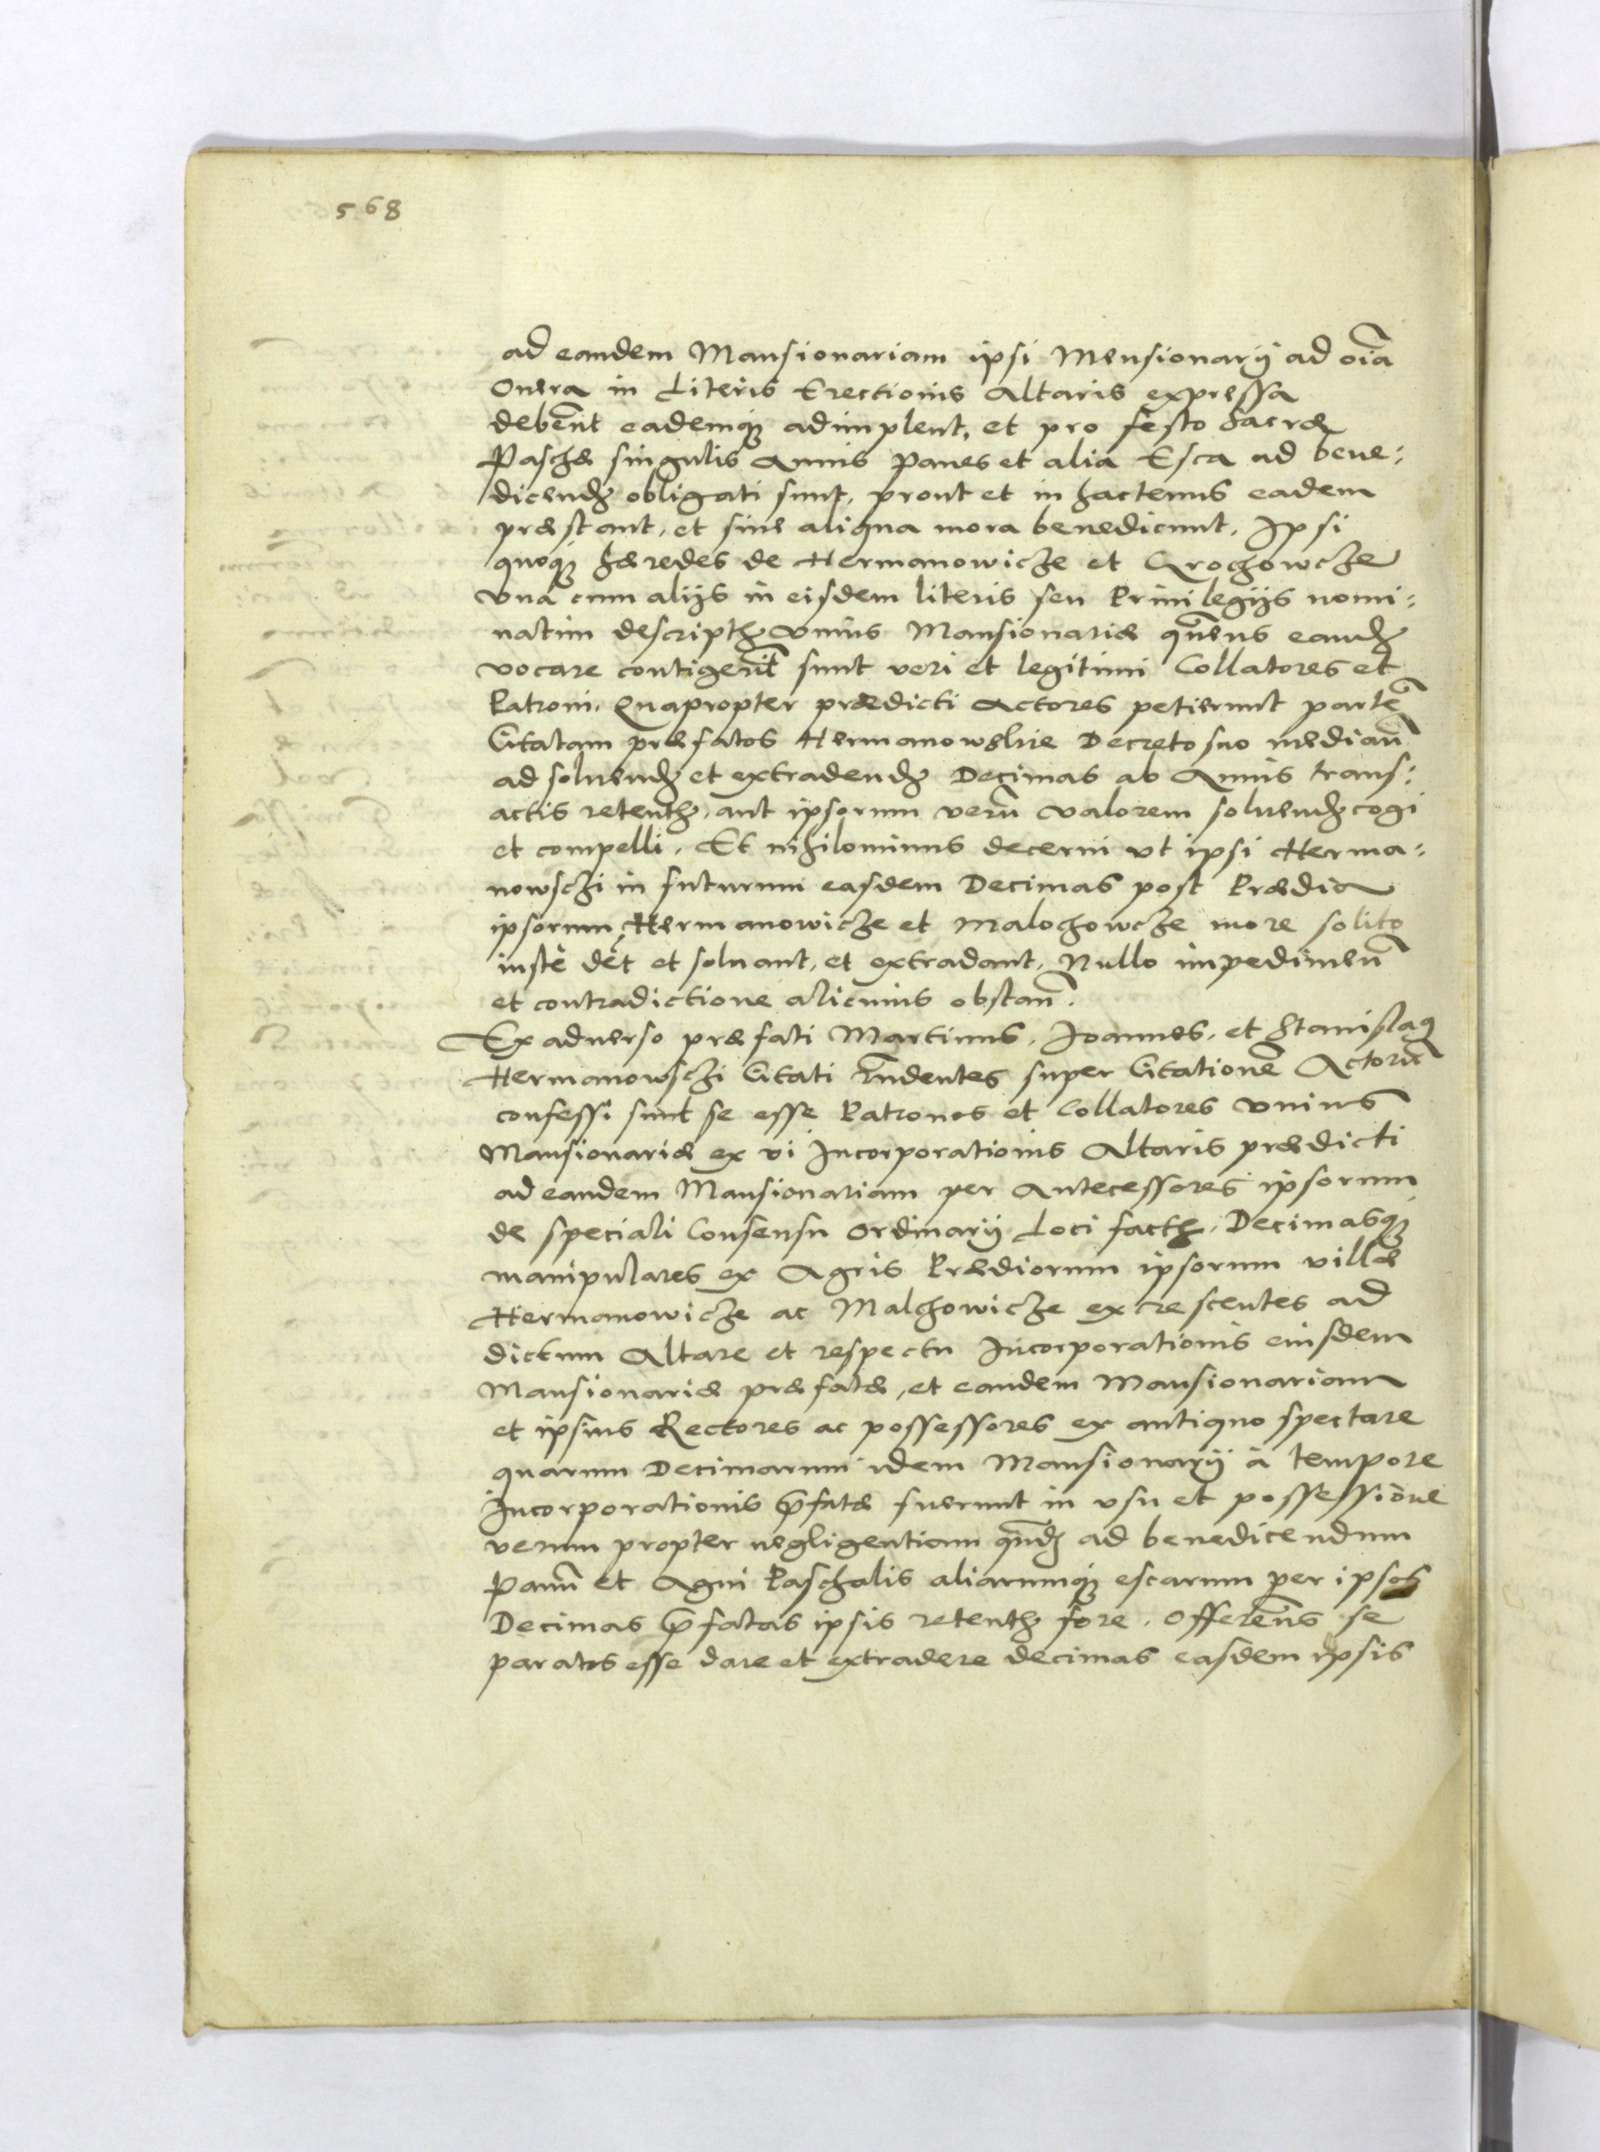 568
ad eandem Mansionariam ipsi Mensionarÿ ad oīa
Onera in Literis Erectionis Altaris expressa
debent̄ eademq₃ adimplent, et pro festo Sacræ
Paschæ singulis Annis panes et alia Esca ad bene:
dicend₃ obligati sunt, prout et in hactenus eadem
præstant, et sine aliqua mora benedicunt, Ipsi
quoq₃ hæredes de Hermanowicze et Grochowcze
Vna cum alijs in eisdem literis seu Priuilegijs nomi:
natim descript₃ Vnius Mansionariæ quēns eand₃
vocare contigerit̄ sunt veri et legitimi Collatores et
Patroni, Quapropter prædicti Actores petierunt partē
Citatam præfatos Hermanowskie Decreto suo median̄
ad soluend₃ et extradend₃ Decimas ab Annis trans:
actis retent₃, aut ipsorum verū valorem soluend₃ cogi
et compelli, Et nihilominus decerni vt ipsi Herma:
nowschi in futurum easdem Decimas post Prædia
ipsorum Hermanowicze et Malochowcze more solito
iuste dēt et soluant, et extradant, Nullo impedimen̄
et contradictione alicuius obstan̄.
Ex aduerso præfati Martinus, Joannes, et Stanislaq
Hermanowschi Citati r̄ndentes super Citationē Actorū
confessi sunt se esse Patronos et Collatores Vnius
Mansionariæ ex vi Incorporationis Altaris prædicti
ad eandem Mansionariam per Antecessores ipsorum
de speciali Consensu Ordinarÿ Loci fact₃, Decimasq₃
manipulares ex Agris Prædiorum ipsorum villæ
Hermanowicze ac Malchowicze excrescentes ad
dictum Altare et respectu Incorporationis eiusdem
Mansionariæ præfatæ, et eandem Mansionariam
et ipsius Rectores ac possessores ex antiquo spectare
quarum Decimarum idem Mansionarÿ à tempore
Incorporationis p̄fatæ fuerunt in vsu et possessione
verum propter negligentiam quād₃ ad benedicendum
Panū et Agni Paschalis aliarumq₃ escarum per ipsos
Decimas p̄fatas ipsis retent₃ fore. Offerēns se
paratos esse dare et extradere decimas easdem ipsis